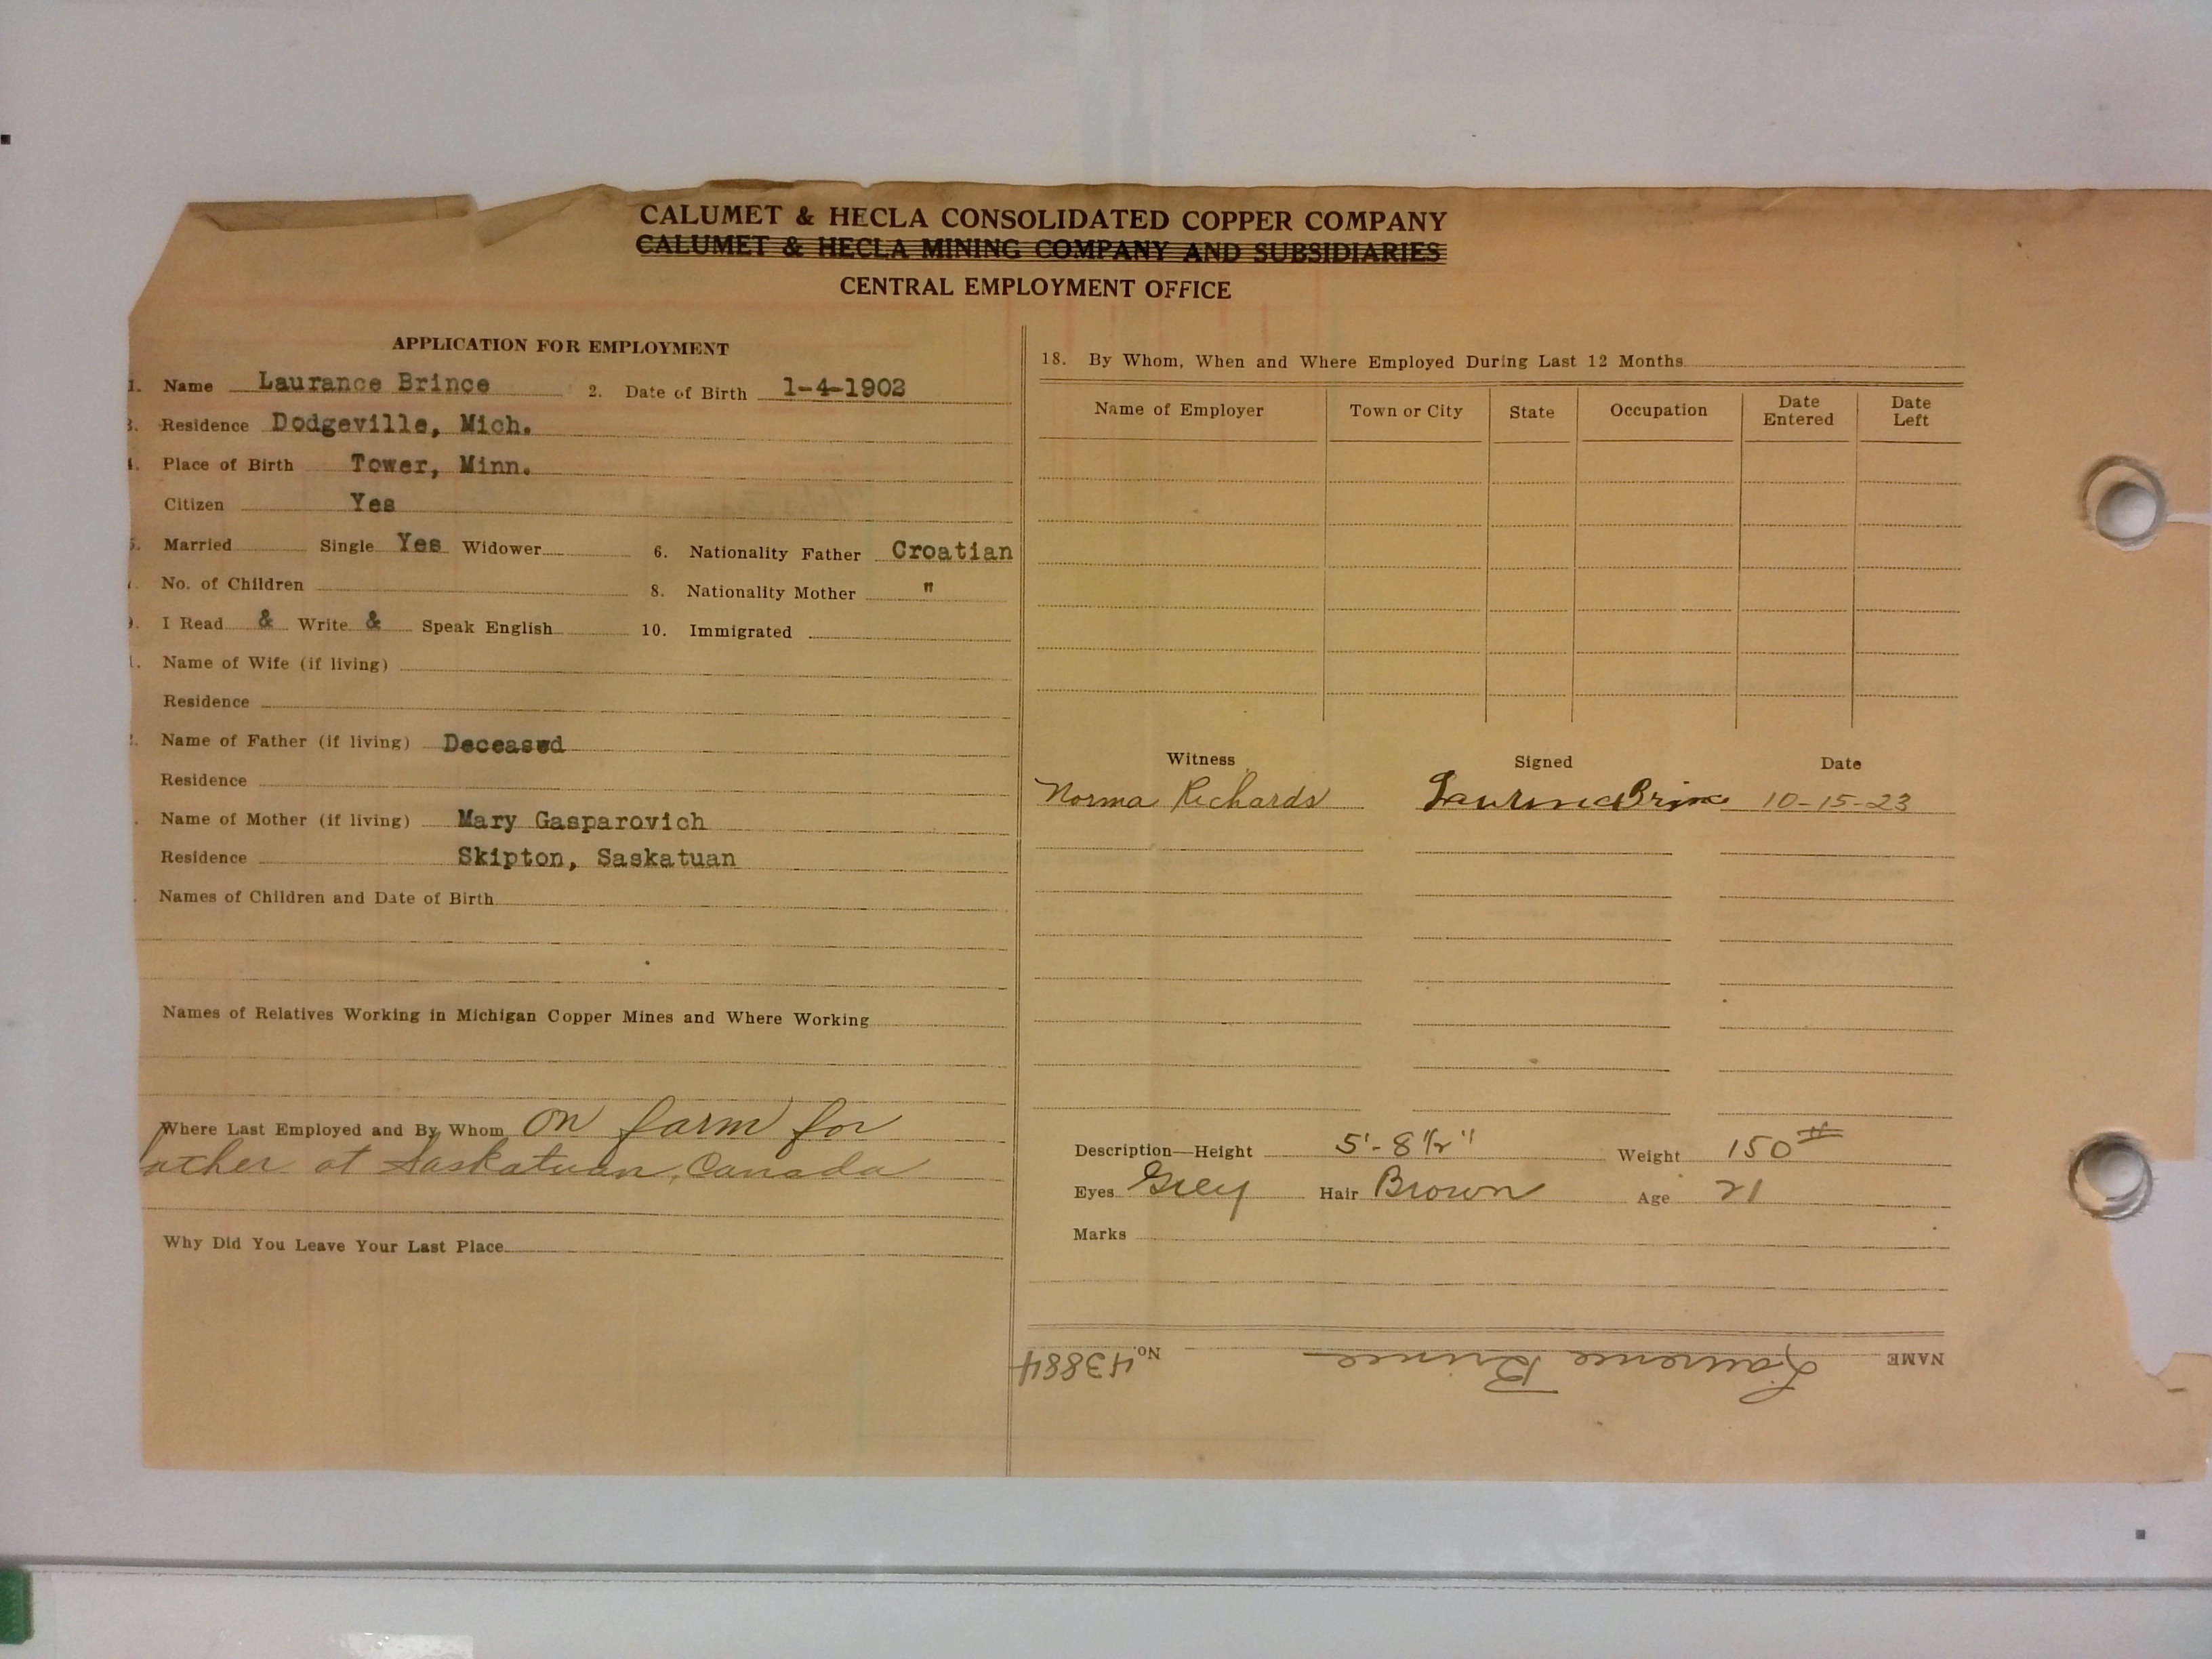 CALUMET & HECLA CONSOLIDATED COPPER COMPANY
CALUMET & HECLA MINING COMPANY AND SUBSIDIARIES
CENTRAL EMPLOYMENT OFFICE
APPLICATION FOR EMPLOYMENT
1. Name Laurance Brince 2. Date of Birth 1-4-1902
3. Residence Dodgeville, Mich.
4. Place of Birth Tower, Minn.
Citizen Yes
5. Married Single Yes Widower 6. Nationality Father Croatian
No. of Children 8. Nationality Mother "
9. I Read & Write & Speak English 10. Immigrated
1. Name of Wife (if living)
Residence
Name of Father (if living) Deceased
Residence
Name of Mother (if living) Mary Gasparovich
Residence Skipton, Saskatuan
Names of Children and Date of Birth
Names of Relatives Working in Michigan Copper Mines and Where Working
Where Last Employed and By Whom on farm for
father at Saskatuan, Canada
Why Did You Leave Your Last Place
18. By Whom, When and Where Employed During Last 12 Months
Name of Employer Town or City State Occupation Date Entered Date Left
Witness Signed Date
Norma Richards Laurence Brince 10-15-23
Description—Height 5'-8 1/2" Weight 150#
Eyes Grey Hair Brown Age 21
Marks
NAME Laurence Brince No. 43884